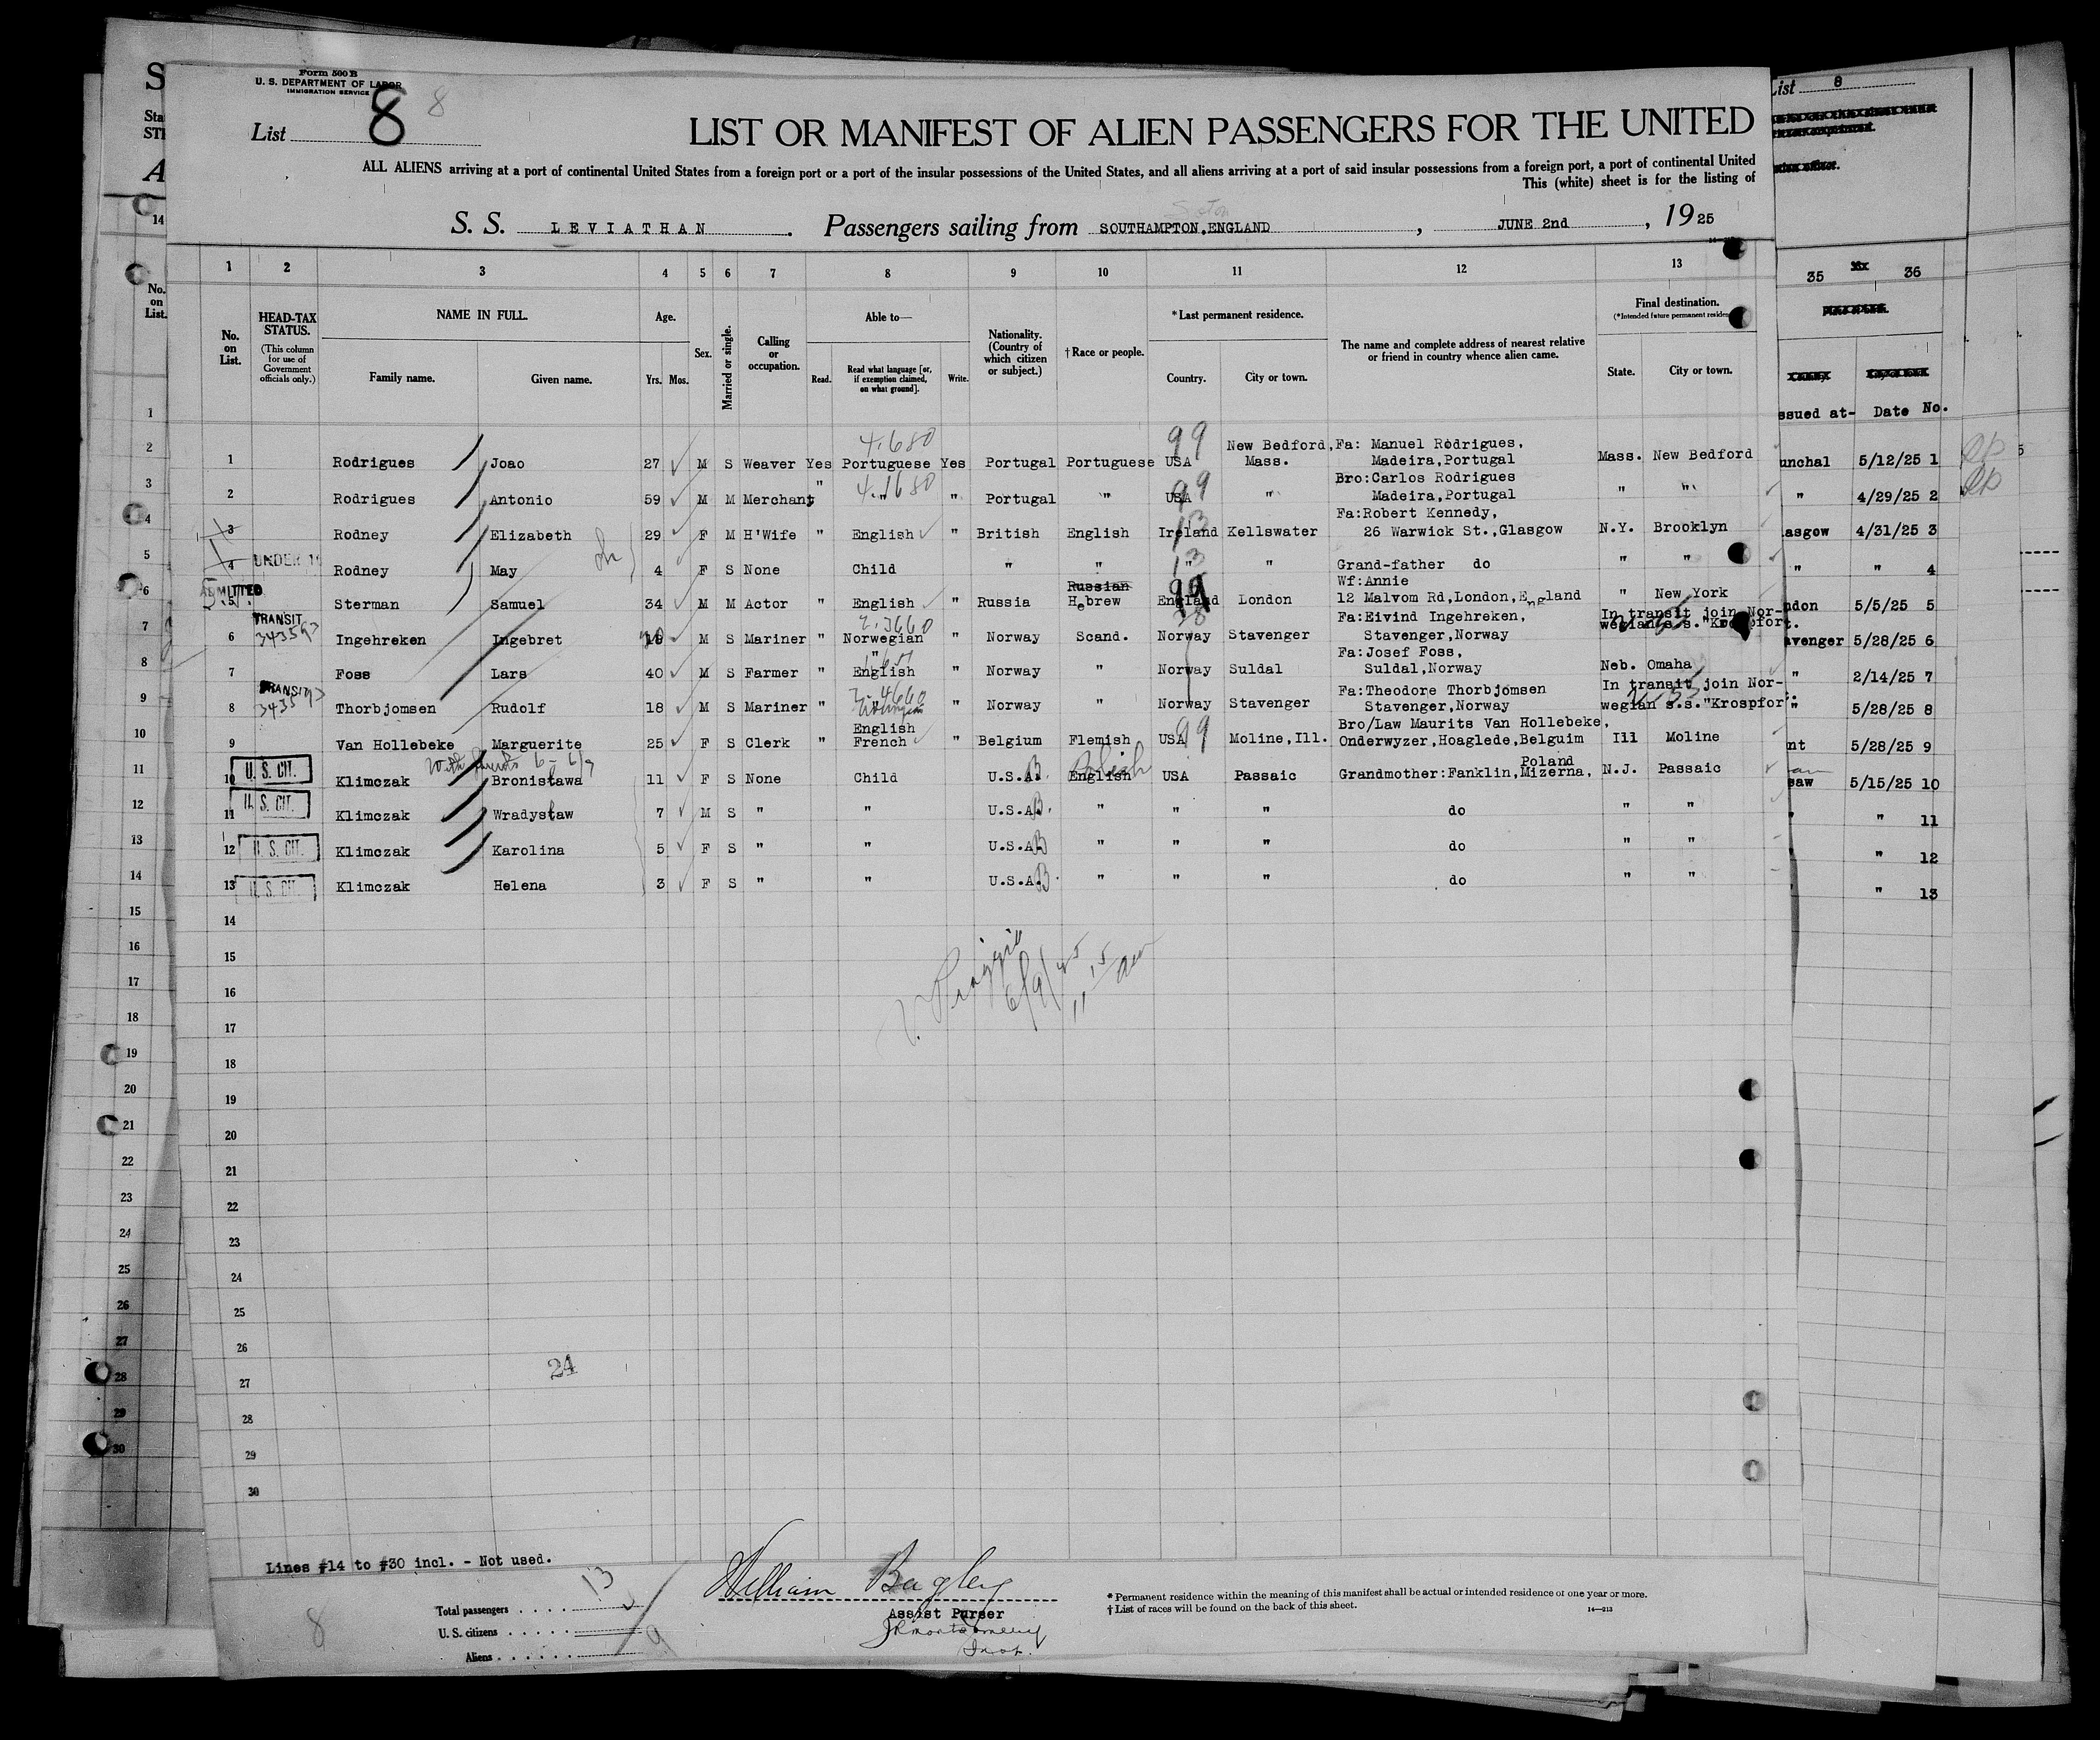 Form 500 B
U. S. DEPARTMENT OF LABOR
IMMIGRATION SERVICE
List 8 8
LIST OR MANIFEST OF ALIEN PASSENGERS FOR THE UNITED
ALL ALIENS arriving at a port of continental United States from a foreign port or a port of the insular possessions of the United States, and all aliens arriving at a port of said insular possessions from a foreign port, a port of continental United
This (white) sheet is for the listing of
S. S. LEVIATHAN. Passengers sailing from SOUTHAMPTON,ENGLAND, JUNE 2nd, 1925
List 8
1 2 3 4 5 6 7 8 9 10 11 12 13 35 36
No. on List.
HEAD-TAX STATUS.
(This column for use of Government officials only.)
NAME IN FULL.
Family name. Given name.
Age.
Yrs. Mos.
Sex.
Married or single.
Calling or occupation.
Able to—
Read. Read what language [or, if exemption claimed, on what ground]. Write.
Nationality. (Country of which citizen or subject.)
†Race or people.
*Last permanent residence.
Country. City or town.
The name and complete address of nearest relative or friend in country whence alien came.
Final destination.
(*Intended future permanent residen
State. City or town.
ssued at- Date No.
1 Rodrigues Joao 27 M S Weaver Yes Portuguese Yes Portugal Portuguese USA 99 New Bedford, Mass. Fa: Manuel Rodrigues, Madeira,Portugal Mass. New Bedford unchal 5/12/25 1
2 Rodrigues Antonio 59 M M Merchant " " " Portugal " USA 99 " Bro:Carlos Rodrigues Madeira,Portugal " " " 4/29/25 2
3 Rodney Elizabeth 29 F M H'Wife " English " British English Ireland Kellswater Fa:Robert Kennedy, 26 Warwick St.,Glasgow N.Y. Brooklyn asgow 4/31/25 3
4 UNDER 16 Rodney May 4 F S None Child " " " " Grand-father do " " " " 4
ADMITTED
5 Sterman Samuel 34 M M Actor " English " Russia Russian Hebrew England London Wf:Annie 12 Malvom Rd,London,England " New York ndon 5/5/25 5
TRANSIT
6 Ingehreken Ingebret M S Mariner " Norwegian " Norway Scand. Norway Stavenger Fa:Eivind Ingehreken, Stavenger,Norway In transit join Norwegian s.s."Krospfort. avenger 5/28/25 6
7 Foss Lars 40 M S Farmer " English " Norway " Norway Suldal Fa:Josef Foss, Suldal,Norway Neb. Omaha " 2/14/25 7
TRANSIT
8 Thorbjomsen Rudolf 18 M S Mariner " " Norway " Norway Stavenger Fa:Theodore Thorbjomsen Stavenger,Norway In transit join Norwegian s.s."Krospfor". " 5/28/25 8
9 Van Hollebeke Marguerite 25 F S Clerk " English French " Belgium Flemish USA 99 Moline,Ill. Bro/Law Maurits Van Hollebeke, Onderwyzer,Hoaglede,Belguim Ill Moline nt 5/28/25 9
10 U. S. CIT. Klimczak Bronisława 11 F S None Child U.S.A. English Polish USA Passaic Grandmother:Fanklin,Mizerna, Poland N.J. Passaic saw 5/15/25 10
11 U. S. CIT. Klimczak Wradysław 7 M S " " U.S.A. " " " do " " " 11
12 U. S. CIT. Klimczak Karolina 5 F S " " U.S.A. " " " do " " " 12
13 U. S. CIT. Klimczak Helena 3 F S " " U.S.A. " " " do " " " 13
14
15
16
17
18
19
20
21
22
23
24
25
26
27
28
29
30
6/9/25
11 15 am
24
Lines #14 to #30 incl. - Not used.
Total passengers 13
U. S. citizens
Aliens 9
8
William Bagley
Assist Purser
JRMontgomery
Insp.
* Permanent residence within the meaning of this manifest shall be actual or intended residence of one year or more.
† List of races will be found on the back of this sheet.
14—213